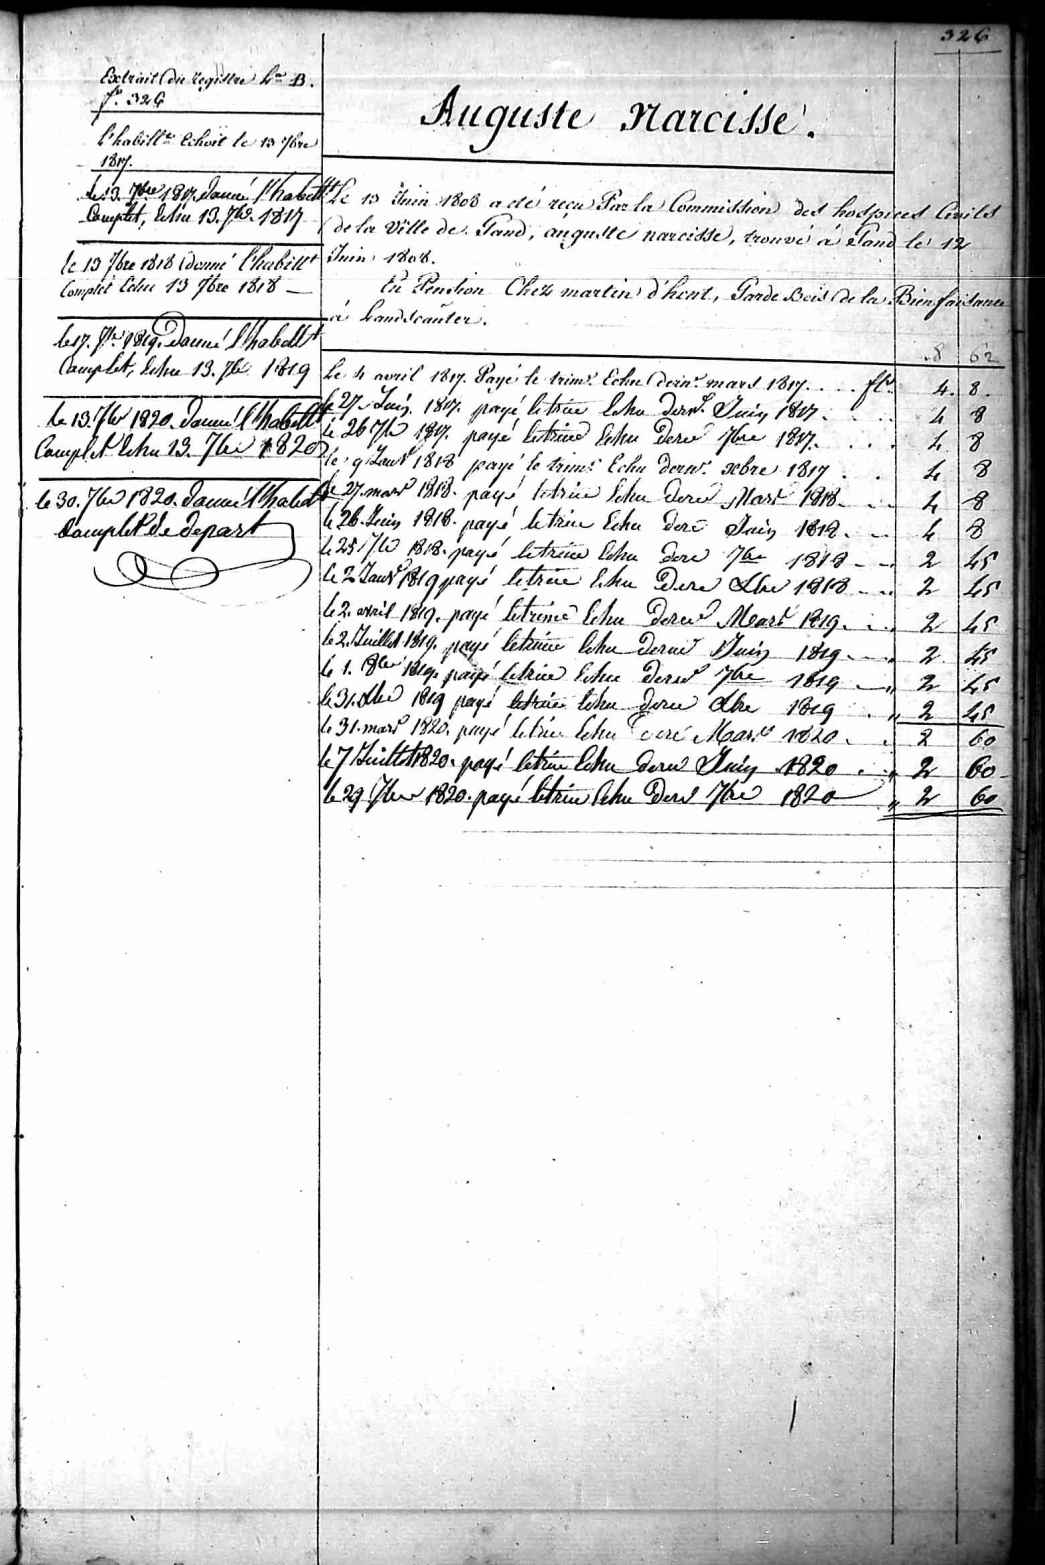 326
Extrait du registre L.re B.
f.o 326
l'habill.t Echoit le 13 7bre
1817.
le 13. 7bre 1817, donné l'habillt
Complet, Echu 13. 7bre 1817
le 13 7bre 1818 donné l'habillt
Complet Echu 13 7bre 1818 —
le 17. 7bre 1819. Donné l'habillt
Complet, Echu 13. 7bre 1819
le 13. 7bre 1820. Donné l'habillt
Complet Echu 13. 7bre 1820
le 30. 7bre 1820. Donné l'habillt
Complet de depart
Auguste Narcisse.
Le 13 Juin 1808 a été reçu Par la Commission des hospices Civils
de la Ville de Gand, auguste narcisse, trouvé à Gand le 12
Juin 1808.
En Pension Chez martin d'hont, Garde Bois de la Bienfaisance
à Landscauter.
8 62
Le 4 avril 1817. Payé le trim.e Echu dern.r mars 1817. . . . fl.s 4. 8.
le 27 Juin 1817. payé le trim Echu dern.r Juin 1817. . . 4 8
le 26 7bre 1817. payé le trim Echu dern 7bre 1817. . . . 4. 8
le 9 Janv.r 1818 payé le trim.e Echu dern.r xbre 1817 . . 4 8
le 27. mars 1818. payé le trim Echu dern Mars 1818. . . 4 8
le 26 Juin 1818. payé le trim Echu dern Juin 1818. . . 4 8
le 25 7bre 1818. payé le trim Echu dern 7bre 1818 . . 2 45
le 2 Janv.r 1819 payé le trim Echu dern Xbre 1818 . . 2 45
le 2. avril 1819. payé le trim Echu dern Mars 1819. . . 2 45
le 2. Juillet 1819. payé le trim Echu dern Juin 1819 . . 2 45
le 1. 8bre 1819. payé le trim Echu dern 7bre 1819 — „ 2 45
le 31. Xbre 1819 payé le trim Echu dern Xbre 1819 . „ 2 45
le 31. mars 1820. payé le trim Echu dern Mars 1820 . . 2 60
le 7 Juillet 1820. payé le trim Echu dern Juin 1820 . „ 2 60
le 29 7bre 1820. payé le trim Echu dern 7bre 1820 „ 2 60